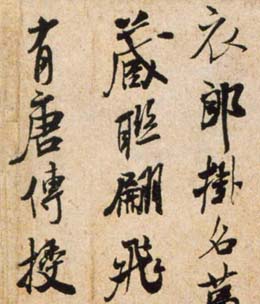 衣郎掛名
藏聯翩飛
有唐傳授